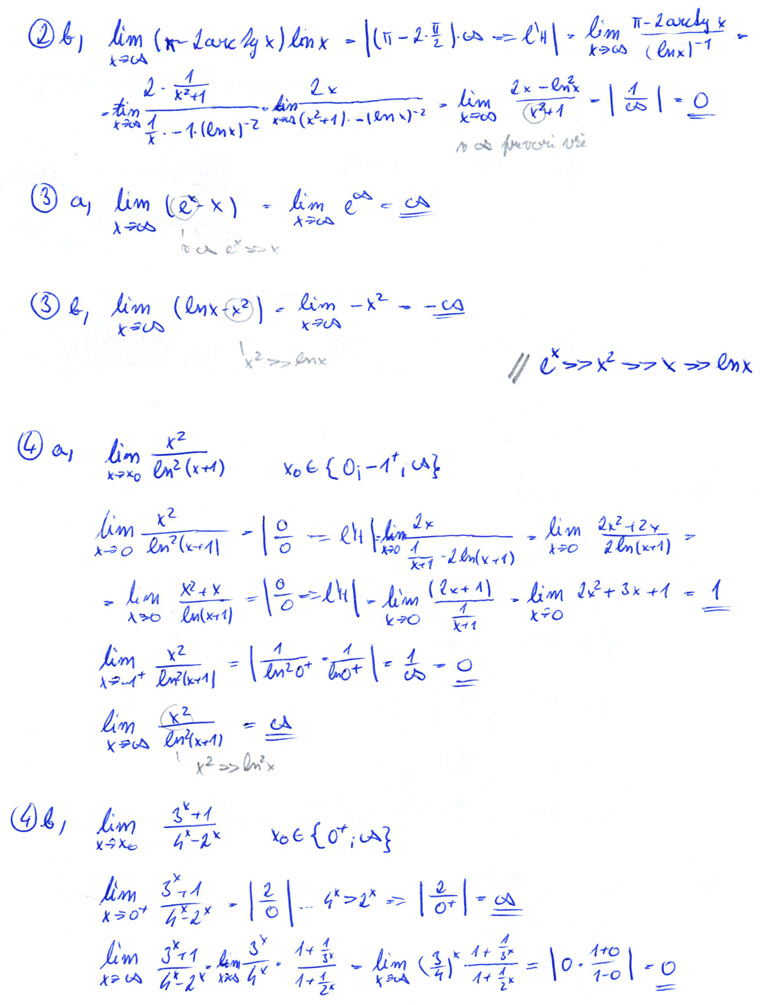 ② b, lim_{x→∞} (π - 2arctg x) ln x = |(π - 2·π/2)·∞ ⇒ l'H| = lim_{x→∞} (π - 2arctg x)/((ln x)^{-1}) =
= lim_{x→∞} (2·1/(x²+1))/(1/x · -1·(ln x)^{-2}) = lim_{x→∞} 2x/((x²+1)·-(ln x)^{-2}) = lim_{x→∞} (2x - ln²x)/(x²+1) = |1/∞| = 0
v ∞ převáží vše
③ a, lim_{x→∞} (e^x - x) = lim_{x→∞} e^∞ = ∞
v ∞ e^x >> x
③ b, lim_{x→∞} (ln x - x²) = lim_{x→∞} -x² = -∞
x² >> ln x
// e^x >> x² >> x >> ln x
④ a, lim_{x→x₀} x²/ln²(x+1) x₀ ∈ {0; -1⁺; ∞}
lim_{x→0} x²/ln²(x+1) = |0/0 ⇒ l'H| = lim_{x→0} 2x/(1/(x+1)·2ln(x+1)) = lim_{x→0} (2x²+2x)/(2ln(x+1)) =
= lim_{x→0} (x²+x)/ln(x+1) = |0/0 ⇒ l'H| = lim_{x→0} (2x+1)/(1/(x+1)) = lim_{x→0} 2x²+3x+1 = 1
lim_{x→-1⁺} x²/ln²(x+1) = |1/ln²0⁺ · 1/ln0⁺| = 1/∞ = 0
lim_{x→∞} x²/ln²(x+1) = ∞
x² >> ln²x
④ b, lim_{x→x₀} (3^x+1)/(4^x-2^x) x₀ ∈ {0⁺; ∞}
lim_{x→0⁺} (3^x+1)/(4^x-2^x) = |2/0| ... 4^x > 2^x ⇒ |2/0⁺| = ∞
lim_{x→∞} (3^x+1)/(4^x-2^x) = lim_{x→∞} 3^x/4^x · (1+1/3^x)/(1+1/2^x) = lim_{x→∞} (3/4)^x · (1+1/3^x)/(1+1/2^x) = |0·(1+0)/(1-0)| = 0